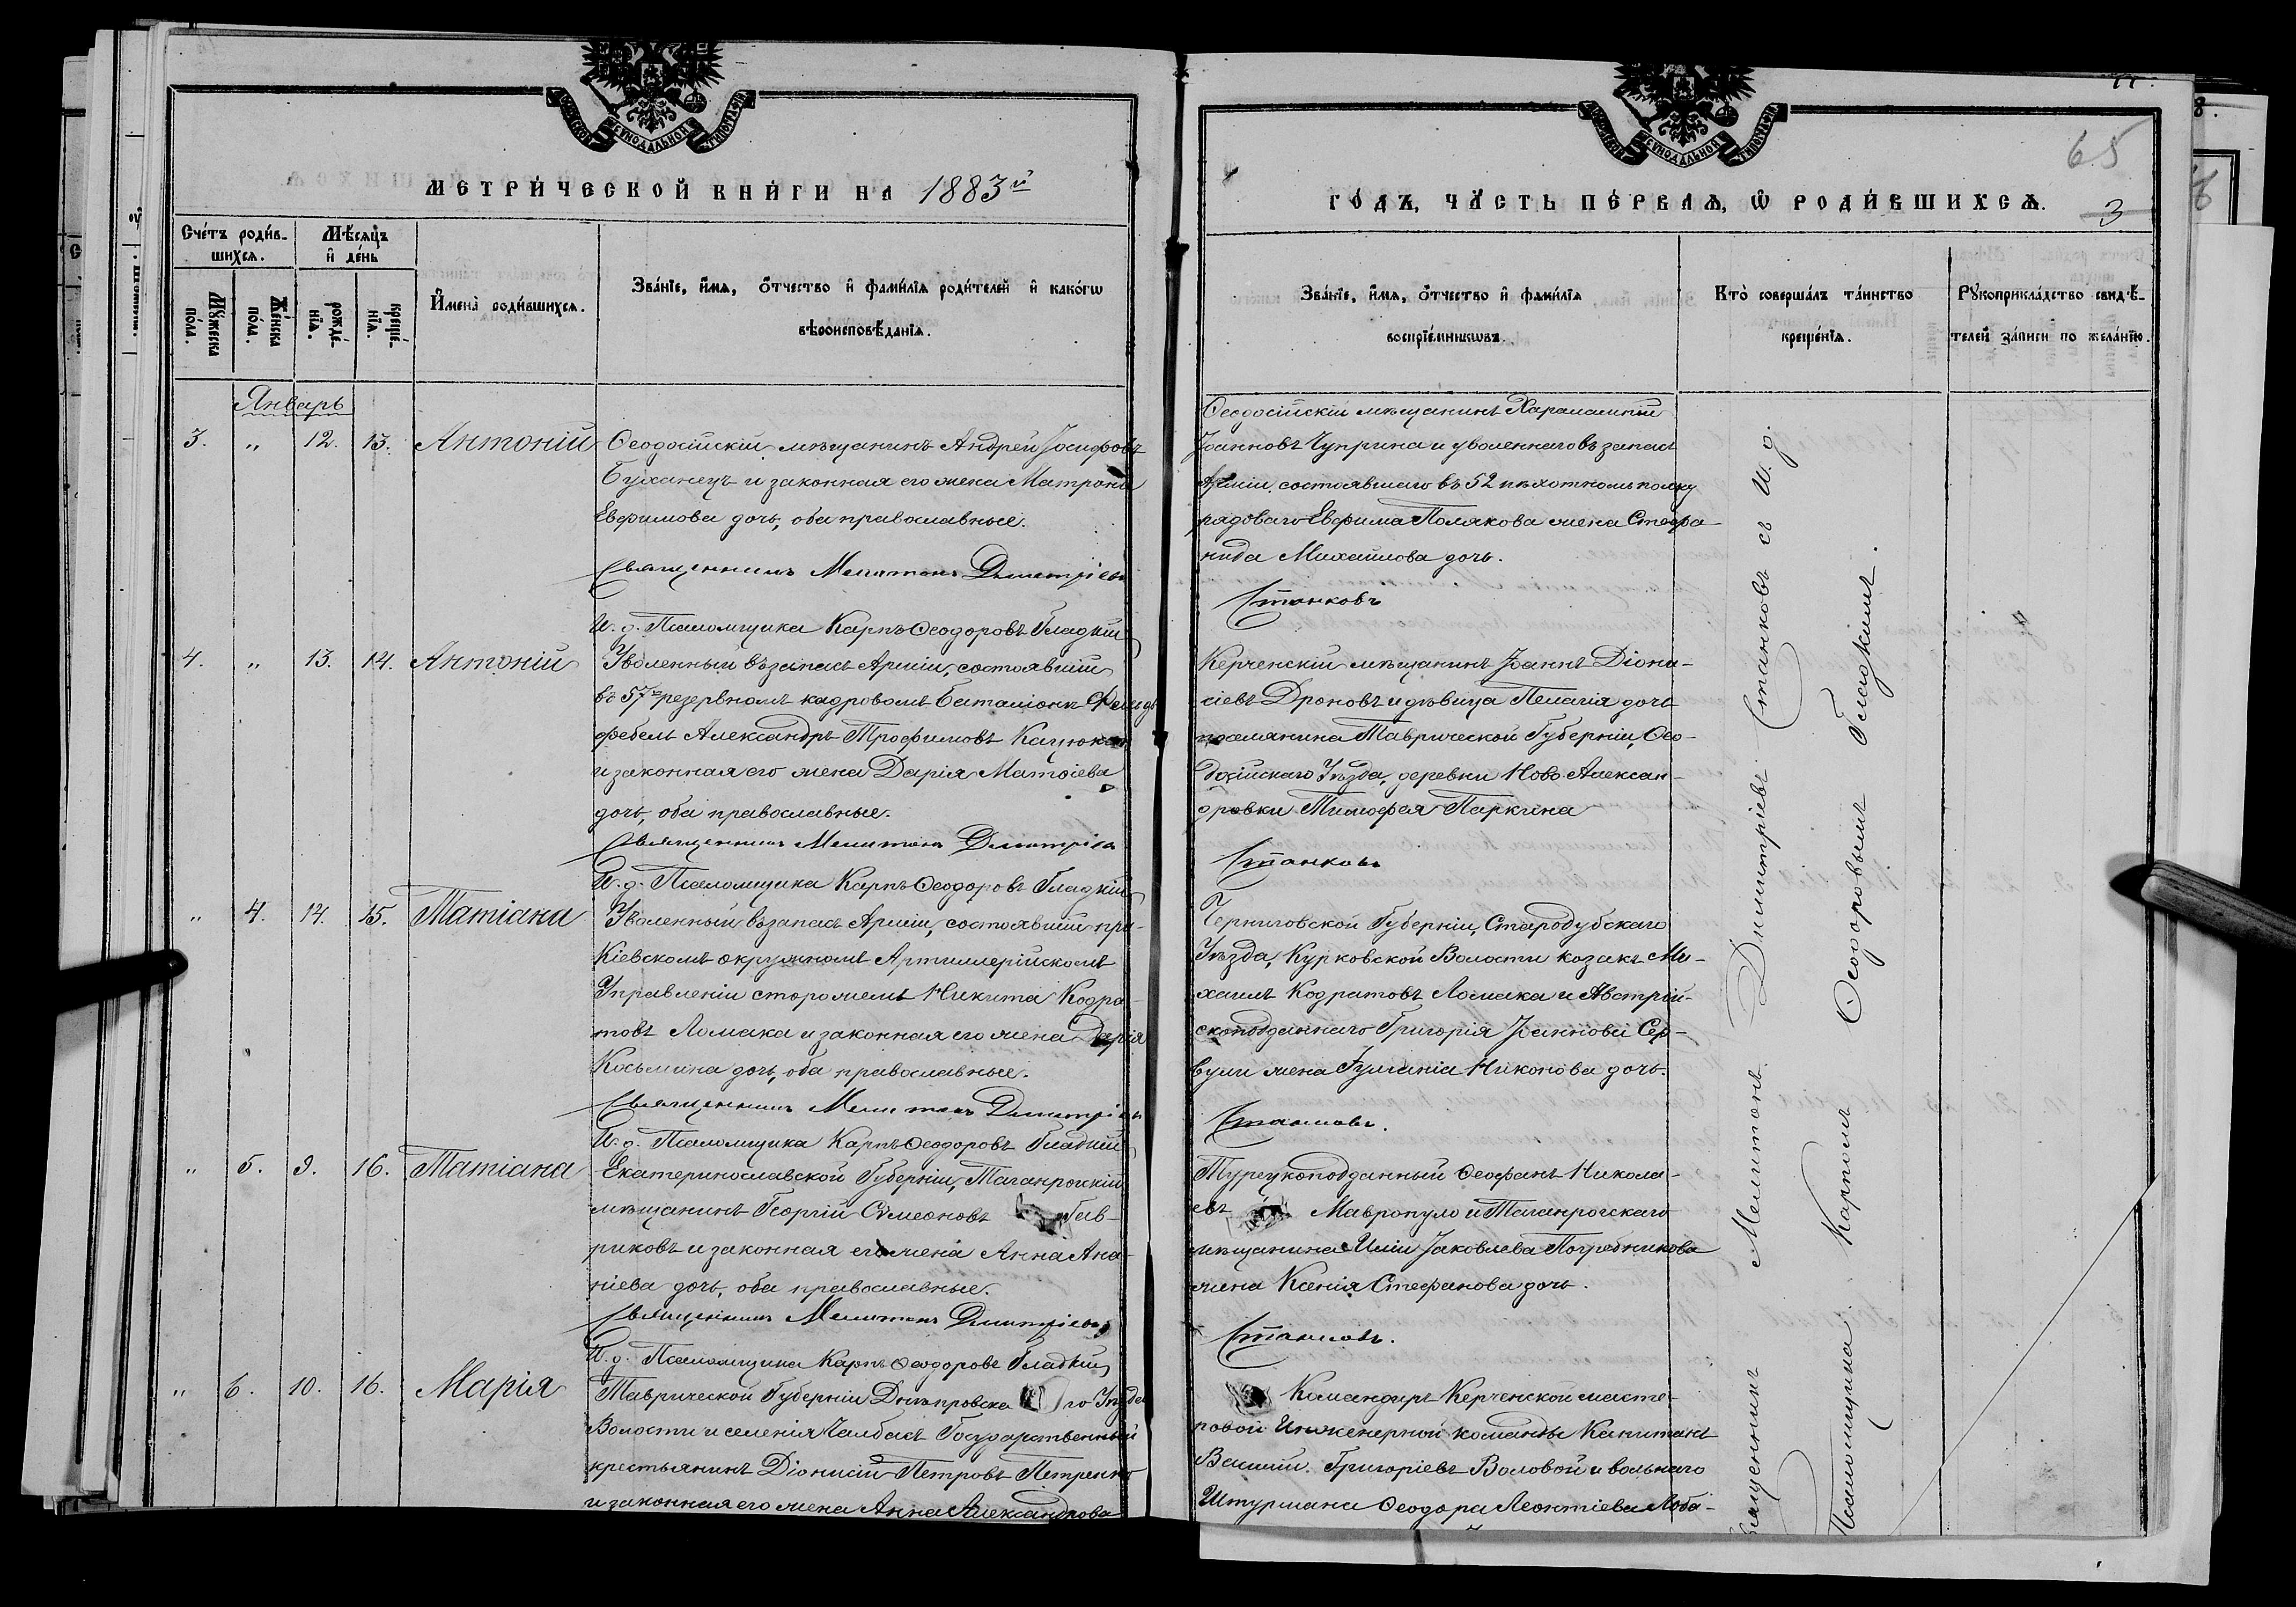 МЕТРИ́ЧЕСКОЙ КНИ́ГИ НА 1883й
Счéтъ роди́в-
шихся.
Мѣ́сяцъ
и де́нь
Му́жеска
по́ла.
Же́нска
по́ла.
рожде́-
нїя.
креще́-
нїя.
И҆мена̀ роди́вшихся.
Зва́нїе, и҆́мя, ѻ҆́тчество и҆ фами́лїя роди́телей и҆ како́гѡ
вѣроисповѣ́данїя.
Январь
3. " 12. 13. Антоній
Ѳеодосійскій мѣщанинъ Андрей Іосифовъ
Буханецъ и законная его жена Матрона
Евфимова дочь, оба православные.
Священникъ Мелитонъ Димитріевъ
И. д. Псаломщика Карпъ Ѳеодоровъ Гладкій
4. " 13. 14. Антоній
Уволенный въ запасъ Арміи, состоявшій
въ 57 резервномъ кадровомъ баталіонѣ Фельд
фебель Александръ Трофимовъ
и законная его жена Дарія Матѳіева
дочь, оба православные.
Священникъ Мелитонъ Димитріевъ
И. д. Псаломщика Карпъ Ѳеодоровъ Гладкій
" 4. 14. 15. Татіана
Уволенный въ запасъ Арміи, состоявшій при
Кіевскомъ окружномъ Артиллерійскомъ
Управленіи сторожемъ Никита Кодра-
товъ Ломака и законная его жена Дарія
Косьмина дочь, оба православные.
Священникъ Мелитонъ Димитріевъ
И. д. Псаломщика Карпъ Ѳеодоровъ Гладкій
" 5. 9. 16. Татіана
Екатеринославской Губерніи, Таганрогскій
мѣщанинъ Георгій Сѵмеоновъ Гав-
риковъ и законная его жена Анна Ана-
ніева дочь, оба православные.
Священникъ Мелитонъ Димитріевъ
И. д. Псаломщика Карпъ Ѳеодоровъ Гладкій
" 6. 10. 16. Марія
Таврической Губерніи Днѣпровска го Уѣзда
Волости и селенія Чалбасъ Государственный
крестьянинъ Діонисій Петровъ Петренко
и законная его жена Анна Александрова
65
ГО́ДЪ, ЧА́СТЬ ПЕ́РВАЯ, Ѡ҆ РОДИ́ВШИХСЯ.
3
Зва́нїе, и҆́мя, ѻ҆́тчество и҆ фами́лїя
воспрїе́мникѡвъ.
Кто̀ соверша́лъ та́инство
креще́нїя.
Рꙋкоприкла́дство свидѣ́-
телей за́писи по жела́нїю.
Ѳеодосійскій мѣщанинъ Харалампій
Іоанновъ Чуприна и уволеннаго въ запасъ
Арміи, состоявшаго въ 52 пѣхотномъ полку
рядоваго Евфима Полякова жена Стефа-
нида Михайлова дочь.
Станковъ
Керченскій мѣщанинъ Іоаннъ Діони-
сіевъ Дроновъ и дѣвица Пелагія дочь
поселянина Таврической Губерніи, Ѳео-
досійскаго Уѣзда, деревни Ново-Алексан-
дровки Тимофея Паркина
Станковъ
Черниговской Губерніи, Стародубскаго
Уѣзда, Курковской Волости козакъ Ми-
хаилъ Кодратовъ Ломака и Австрій-
скоподданнаго Григорія Іоаннова Сер-
вули жена Іуліанія Никонова дочь.
Станковъ.
Турецкоподданный Ѳеофанъ Никола-
евъ Мавропуло и Таганрогскаго
мѣщанина Иліи Іаковлева Погребникова
жена Ксенія Стефанова дочь.
Станковъ.
Командиръ Керченской масте-
ровой Инженерной команды Капитанъ
Василій Григоріевъ Воловой и вольнаго
Штурмана Ѳеодора Леонтіева Лоба-
Священникъ Мелитонъ Димитріевъ Станковъ съ И. д.
Псаломщика Карпомъ Ѳеодоровымъ Гладкимъ.